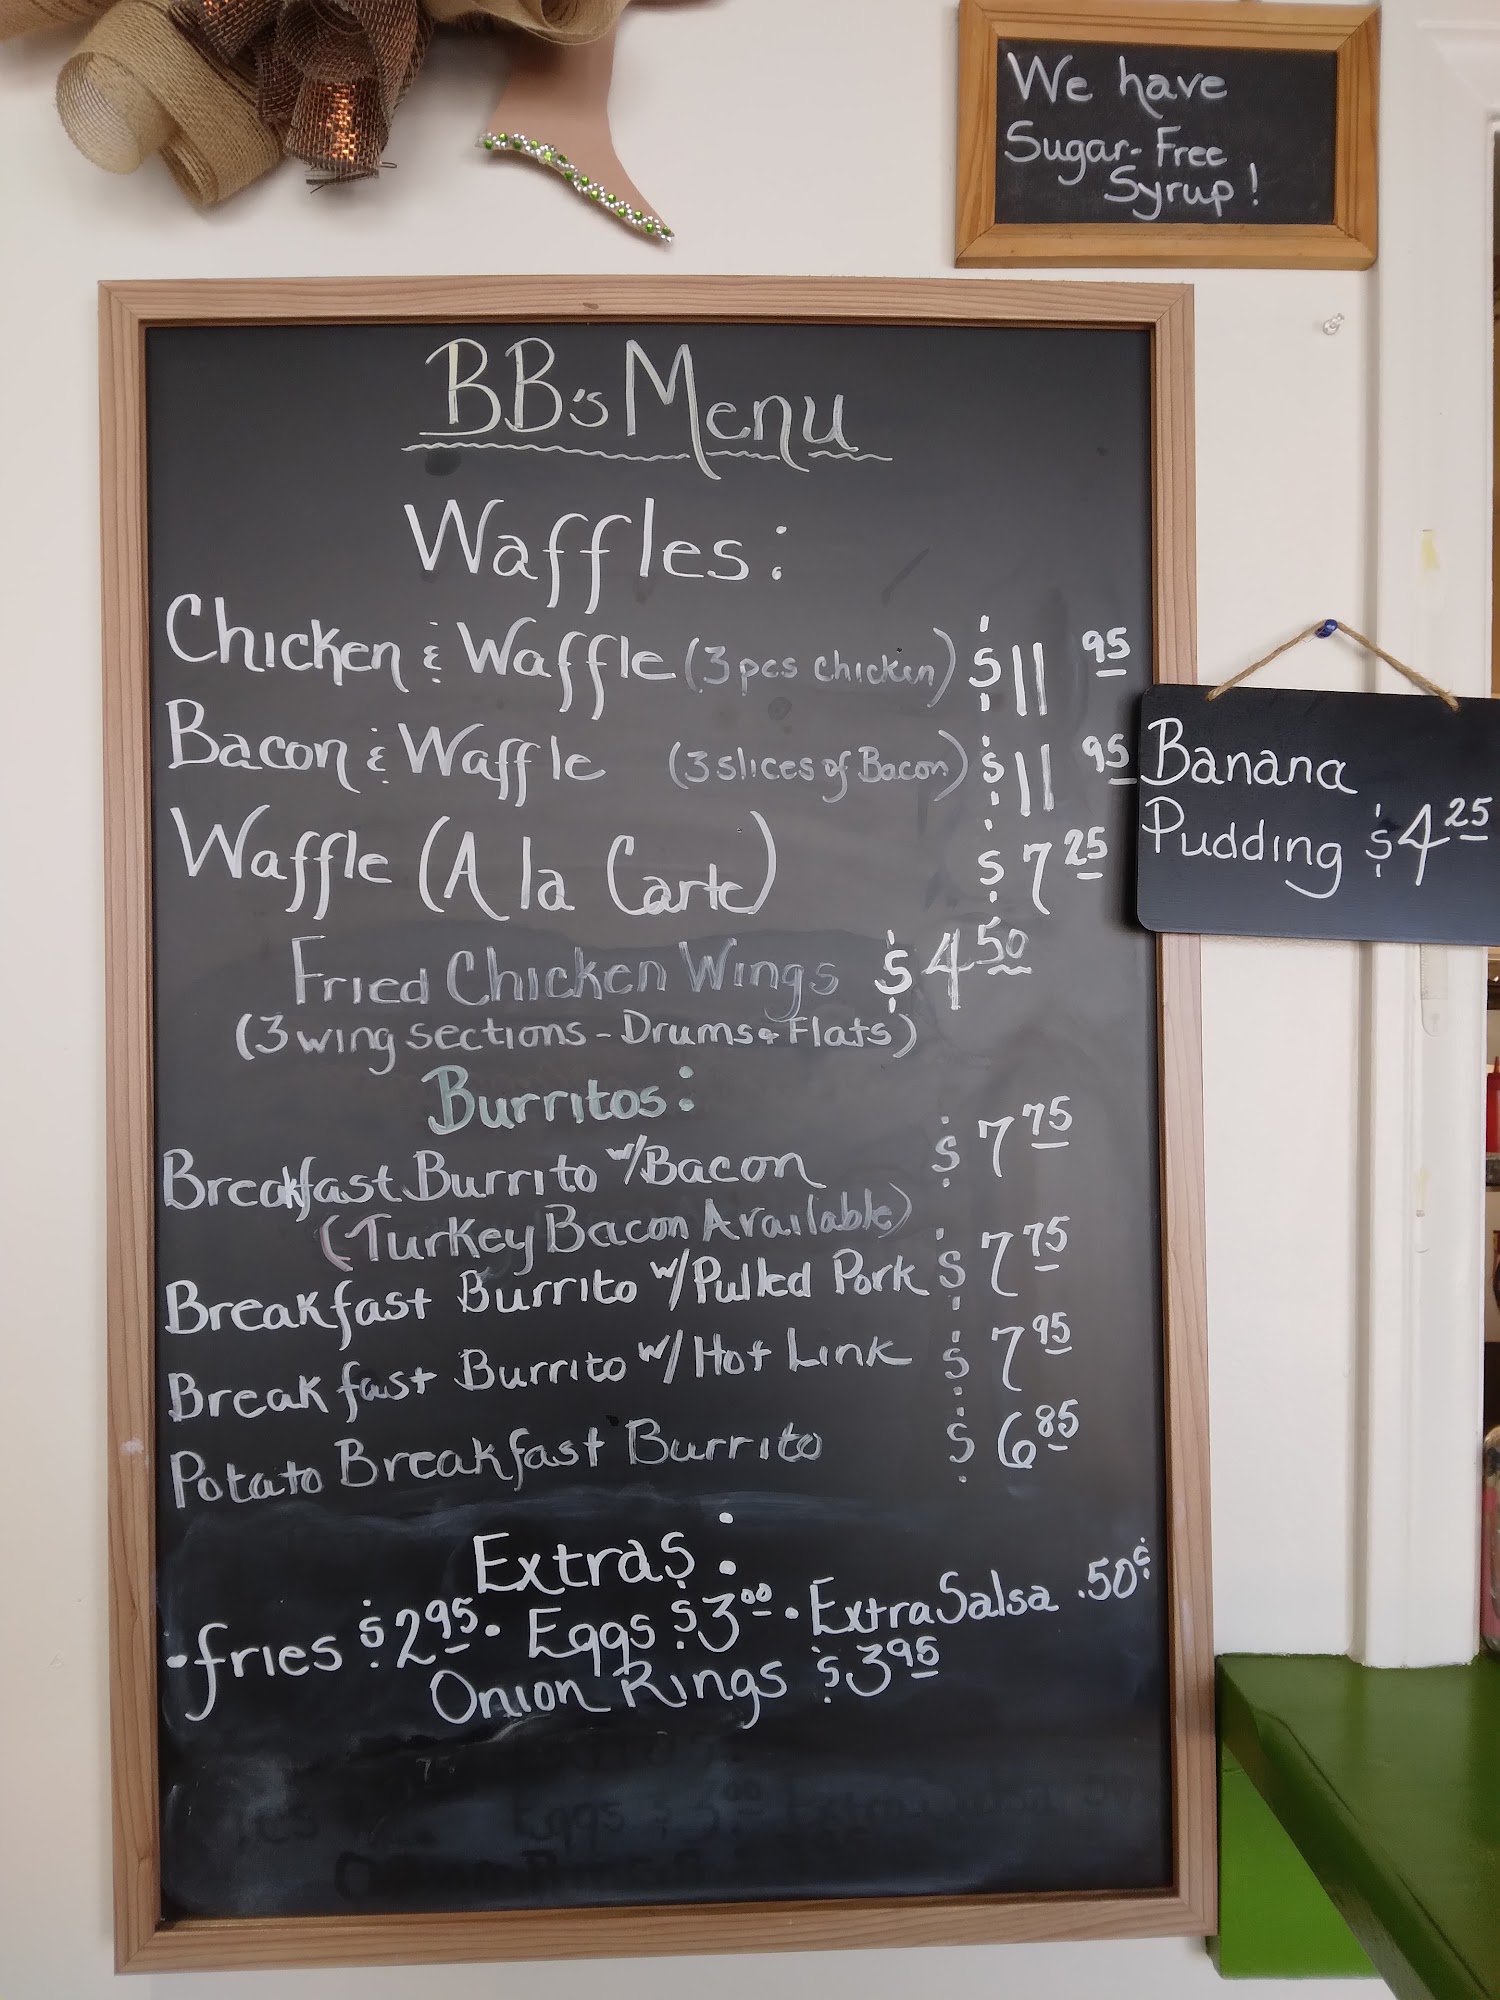 We have
Sugar-Free
Syrup!
BB's Menu
Waffles:
Chicken & Waffle (3 pcs chicken) $11 95
Bacon & Waffle (3 slices of Bacon) $11 95
Waffle (A la Carte) $7 25
Fried Chicken Wings $4 50
(3 wing sections - Drums & Flats)
Burritos:
Breakfast Burrito w/Bacon $7 75
(Turkey Bacon Available)
Breakfast Burrito w/Pulled Pork $7 75
Breakfast Burrito w/Hot Link $7 95
Potato Breakfast Burrito $6 85
Extras:
•fries $2 95 • Eggs $3 00 • Extra Salsa .50¢
Onion Rings $3 95
Banana
Pudding $4 25